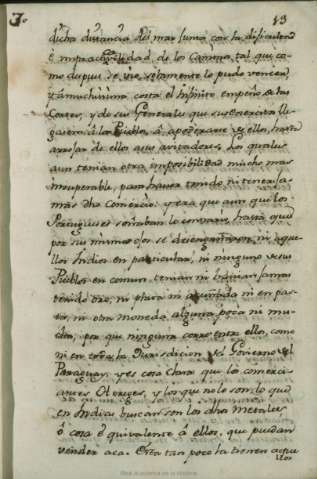 13
dicha distancia del mar junta con la dificultad
è impracticavilidad de los Caminos, tal que co-
mo dupues se vio, solamente lo pudo vencer,
y à muchissima costa el infinito empeño de las
Cortes, y de sus Generales que sus exercitos lle-
gasen à los Pueblos, à apoderarse de ellos, hasta
arrojar de ellos a sus avitadores. Los quales
aun tenian otra imposibilidad mucho mas
insuperable, para haver tenido ni tener ja-
mas dho Comercio: y era que aun que los
Portugueses soñaban lo contrario, hasta que
por sus mismos ojos se desengañaron, ni aque-
llos Indios en particular, ni ninguno de sus
Pueblos en comun, tenian ni havian jamas
tenido oro, ni plata ni acuñada ni en pas-
ta, ni otra moneda alguna poca ni mu-
cha; por que ninguna corre entre ellos, como
ni en toda la Jurisdicion del Govierno del
Paraguay. y es cosa clara que los comerci-
antes Otoreyes, y los que no lo son, lo que
en Indias buscan son los dhos metales
ò cosa equivalente à ellos, que puedan
vender aca. Esta tan poco la tienen aque-
llos